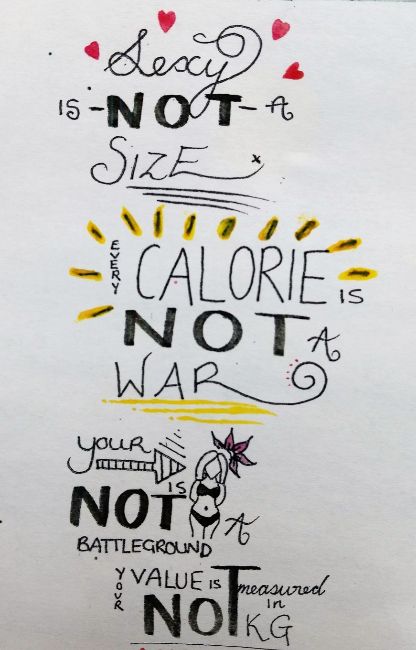 Sexy
IS - NOT - A
SIZE x
EVERY CALORIE IS
NOT A
WAR
your
IS
NOT A
BATTLEGROUND
YOUR VALUE IS measured
NOT in
KG